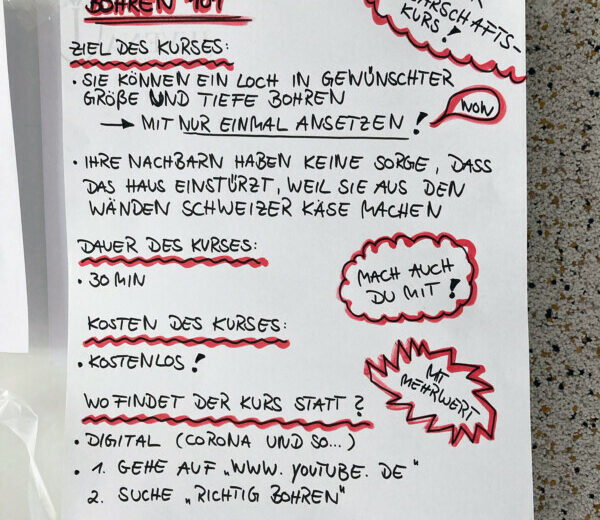 BOHREN 101
ARSCHAFTS-
KURS!
ZIEL DES KURSES:
• SIE KÖNNEN EIN LOCH IN GEWÜNSCHTER
GRÖßE UND TIEFE BOHREN
→ MIT NUR EINMAL ANSETZEN!
WOW
• IHRE NACHBARN HABEN KEINE SORGE, DASS
DAS HAUS EINSTÜRZT, WEIL SIE AUS DEN
WÄNDEN SCHWEIZER KÄSE MACHEN
DAUER DES KURSES:
• 30 MIN
MACH AUCH
DU MIT!
KOSTEN DES KURSES:
• KOSTENLOS!
MIT
MEHRWERT
WO FINDET DER KURS STATT?
• DIGITAL (CORONA UND SO...)
• 1. GEHE AUF „WWW. YOUTUBE. DE"
2. SUCHE „RICHTIG BOHREN"